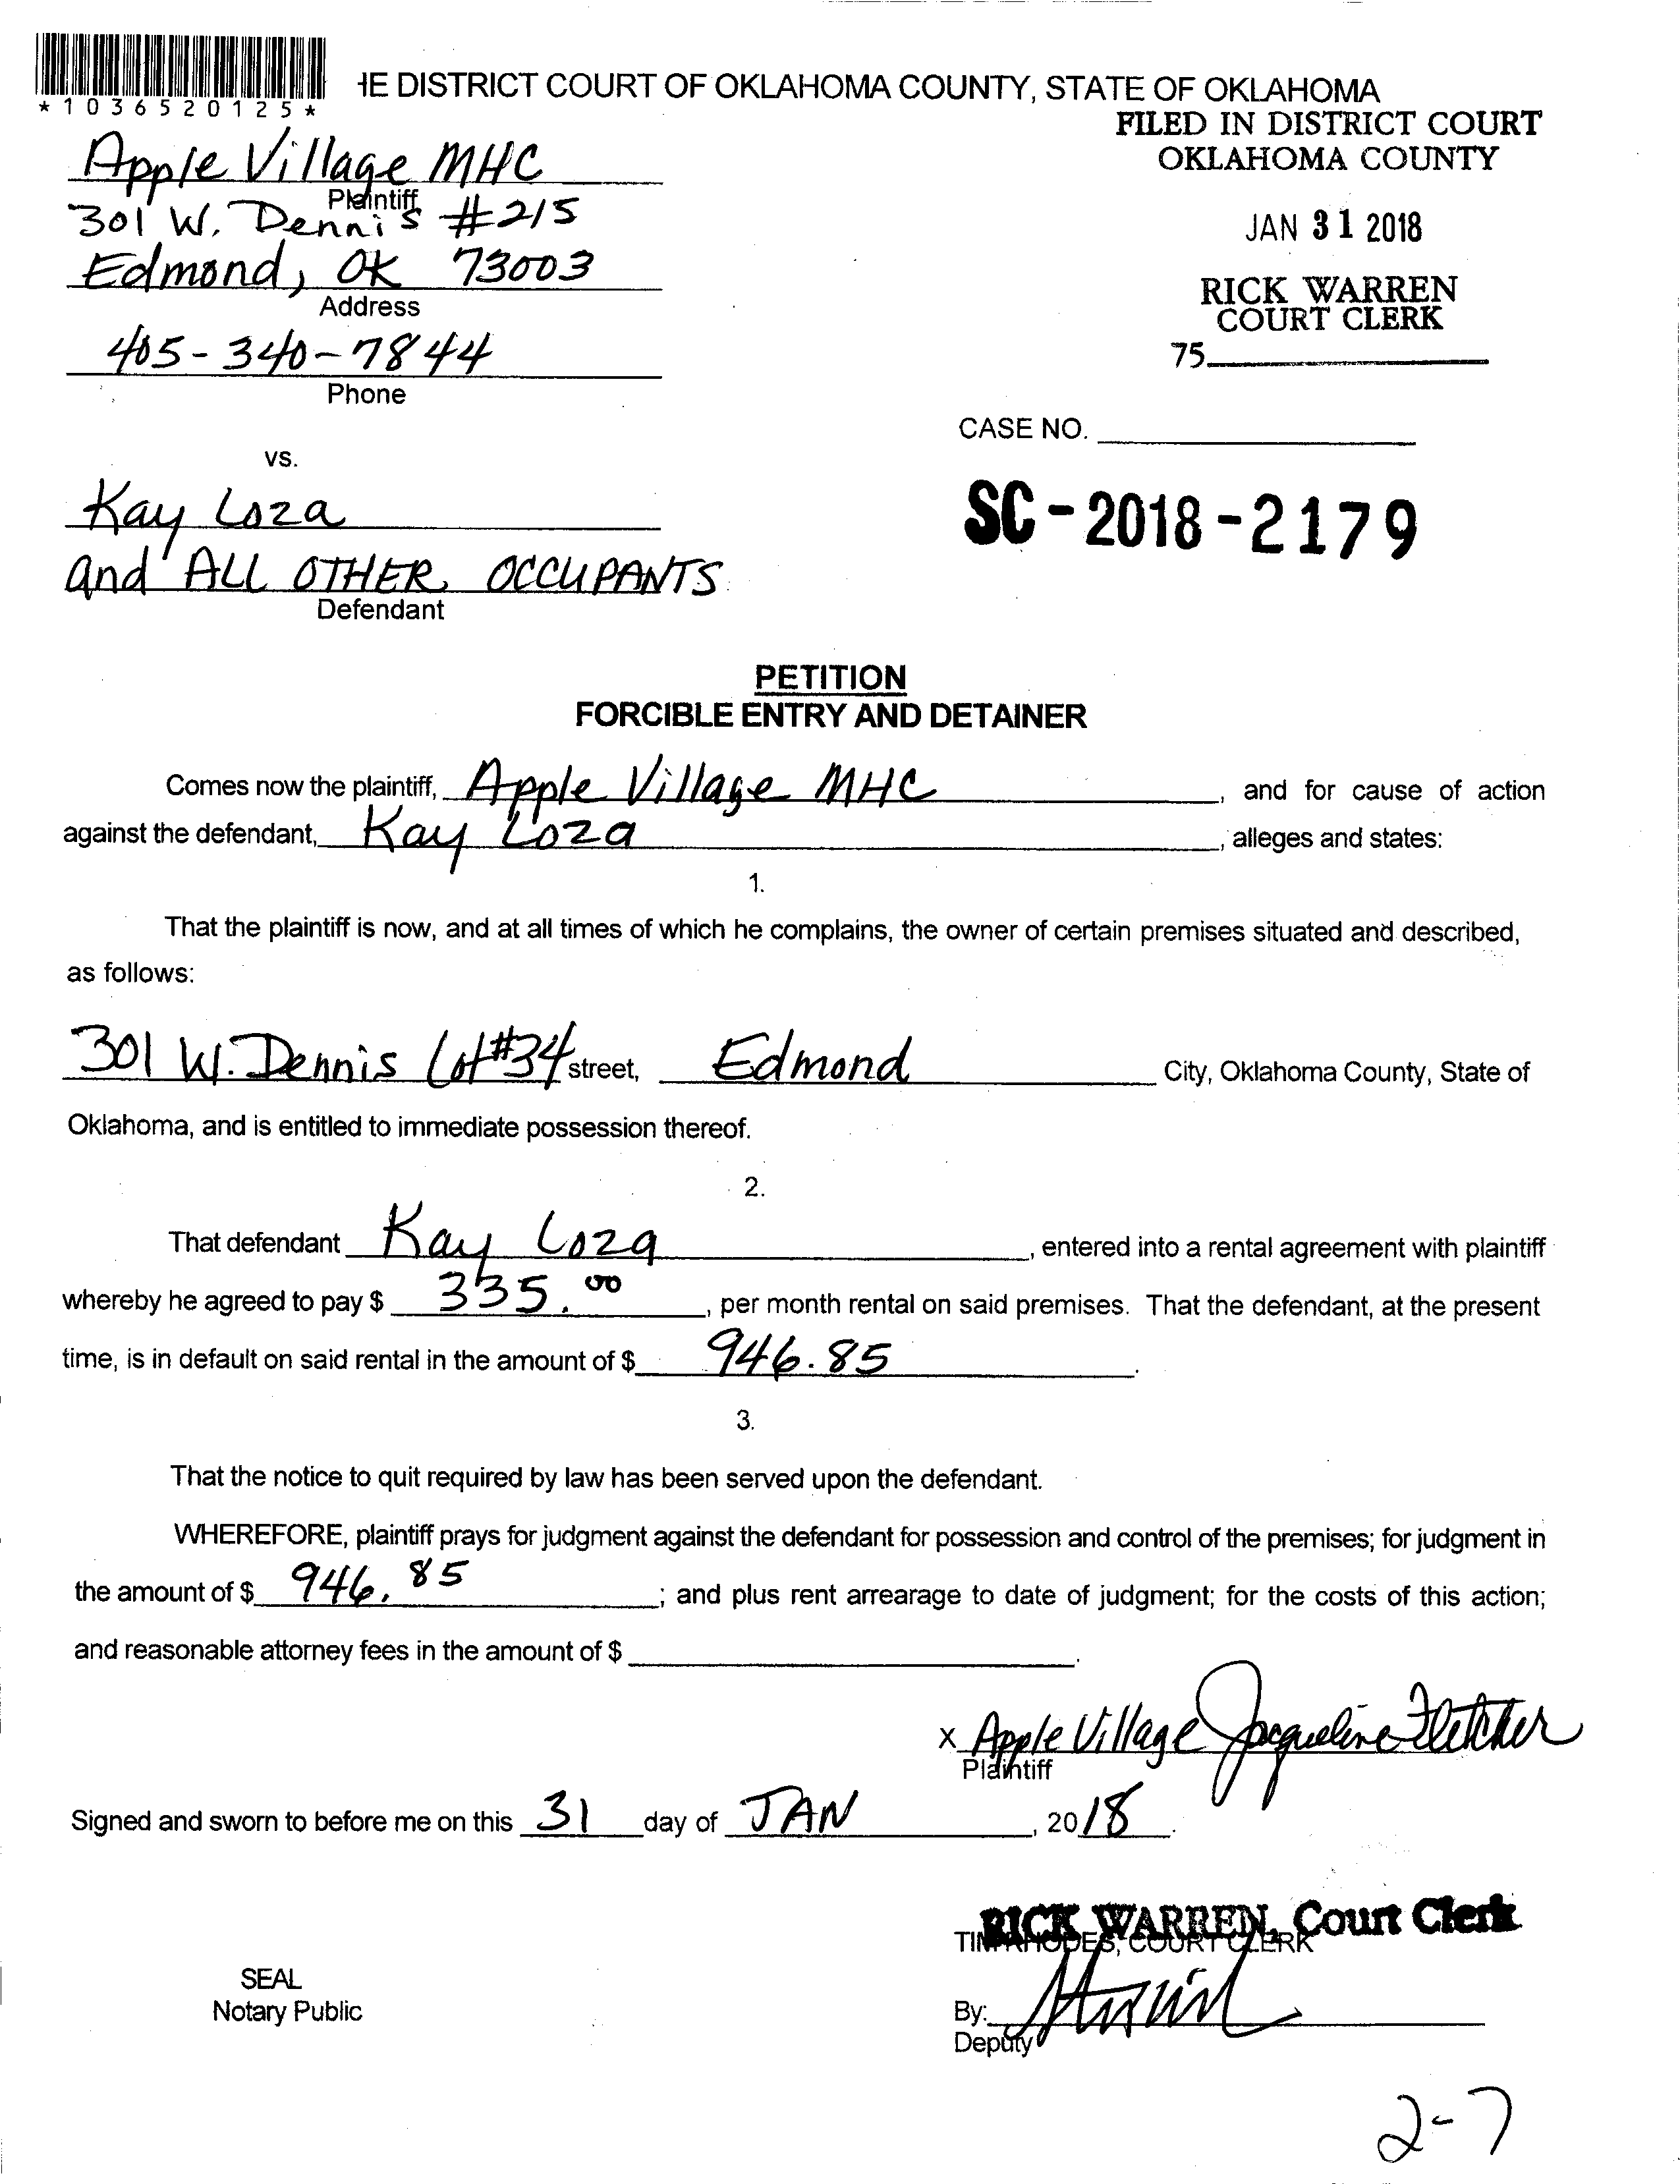 *1036520125*
IE DISTRICT COURT OF OKLAHOMA COUNTY, STATE OF OKLAHOMA
FILED IN DISTRICT COURT
OKLAHOMA COUNTY
JAN 31 2018
RICK WARREN
COURT CLERK
75
Apple Village MHC
Plaintiff
301 W. Dennis #215
Edmond, OK 73003
Address
405-340-7844
Phone
CASE NO.
SC-2018-2179
vs.
Kay Loza
and ALL OTHER OCCUPANTS
Defendant
PETITION
FORCIBLE ENTRY AND DETAINER
Comes now the plaintiff, Apple Village MHC, and for cause of action
against the defendant, Kay Loza, alleges and states:
1.
That the plaintiff is now, and at all times of which he complains, the owner of certain premises situated and described,
as follows:
301 W. Dennis Lot #34 street, Edmond City, Oklahoma County, State of
Oklahoma, and is entitled to immediate possession thereof.
2.
That defendant Kay Loza, entered into a rental agreement with plaintiff
whereby he agreed to pay $ 335.00, per month rental on said premises. That the defendant, at the present
time, is in default on said rental in the amount of $ 946.85.
3.
That the notice to quit required by law has been served upon the defendant.
WHEREFORE, plaintiff prays for judgment against the defendant for possession and control of the premises; for judgment in
the amount of $ 946.85; and plus rent arrearage to date of judgment; for the costs of this action;
and reasonable attorney fees in the amount of $ .
x Apple Village Jacqueline Fletcher
Plaintiff
Signed and sworn to before me on this 31 day of JAN, 2018.
RICK WARREN, Court Clerk
TIM RHODES, COURT CLERK
SEAL
Notary Public
By:
Deputy
2-7